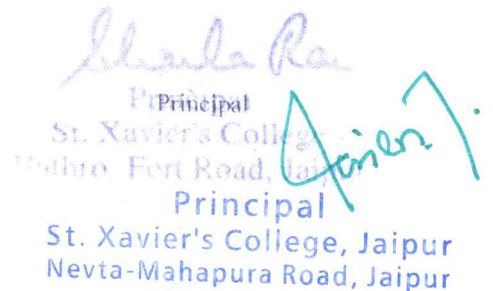 Sharla Rai
Principal
Principal
St. Xavier's College
Hathro Fort Road, Jaipur
Principal
St. Xavier's College, Jaipur
Nevta-Mahapura Road, Jaipur